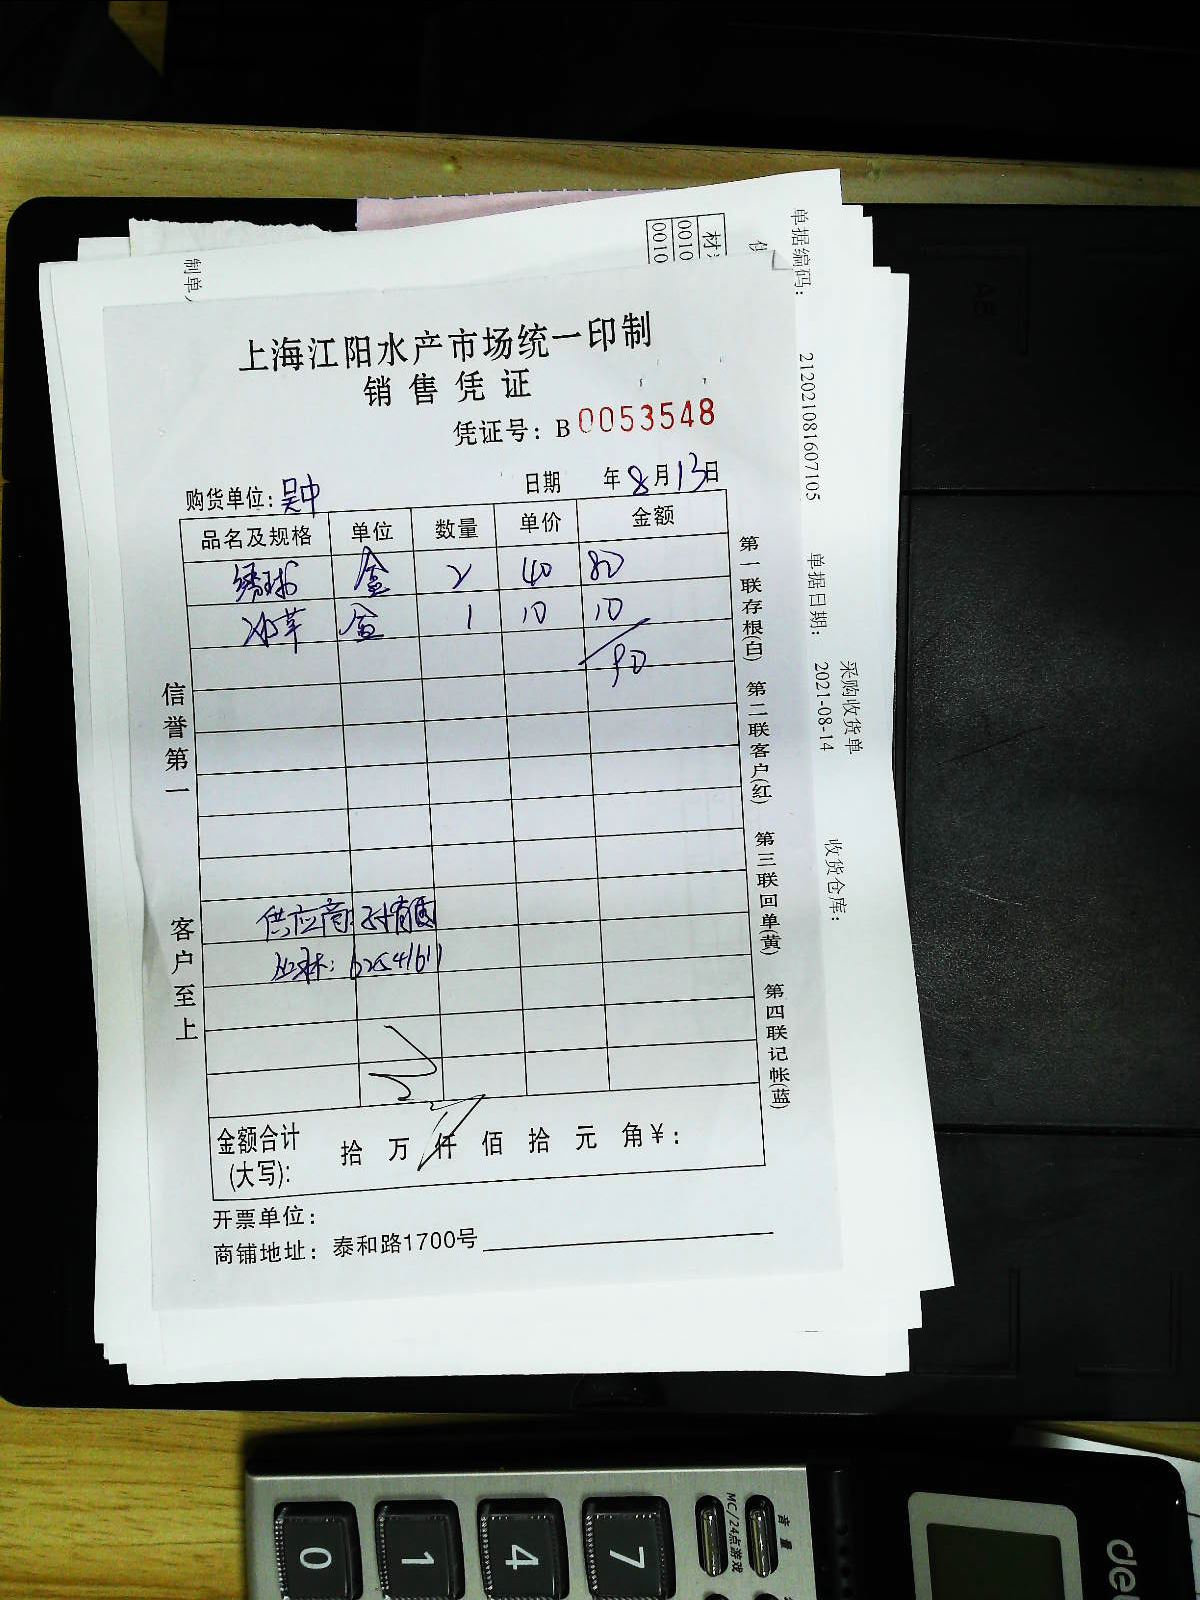 单据编码：
212021081607105
单据日期：
2021-08-14
采购收货单
收货仓库：
制单人
材
0010
0010
上海江阳水产市场统一印制
销售凭证
凭证号：B 0053548
购货单位：吴中 日期 年8月13日
品名及规格 单位 数量 单价 金额
绣球 盒 2 40 80
冰草 盒 1 10 10
90
供应商：
62541611
信誉第一 客户至上
第一联存根(白) 第二联客户(红) 第三联回单(黄) 第四联记帐(蓝)
金额合计
(大写): 拾 万 仟 佰 拾 元 角￥：
开票单位：
商铺地址：泰和路1700号
音量
MC/24点游戏
0 1 4 7
de